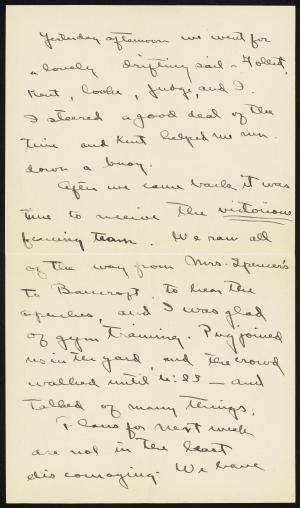 Yesterday afternoon we went for
a lovely drifting sail - Follett,
Kent, Cooke, Judge, and I.
I steered a good deal of the
time and Kent helped me run
down a buoy.
After we came back it was
time to receive the victorious
fencing team. We ran all
of the way from Mrs. Spencer's
to Bancroft to hear the
speeches, and I was glad
of gym training. Pug joined
us in the yard, and the crowd
walked until 6:23 - and
talked of many things.
Plans for next week
are not in the least
discouraging. We have